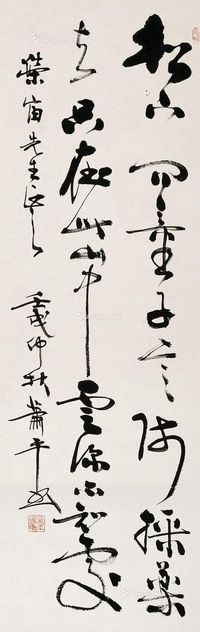 松下問童子言師採藥
去只在此山中雲深不知處
榮宙先生正之 壬戌仲秋蕭平書